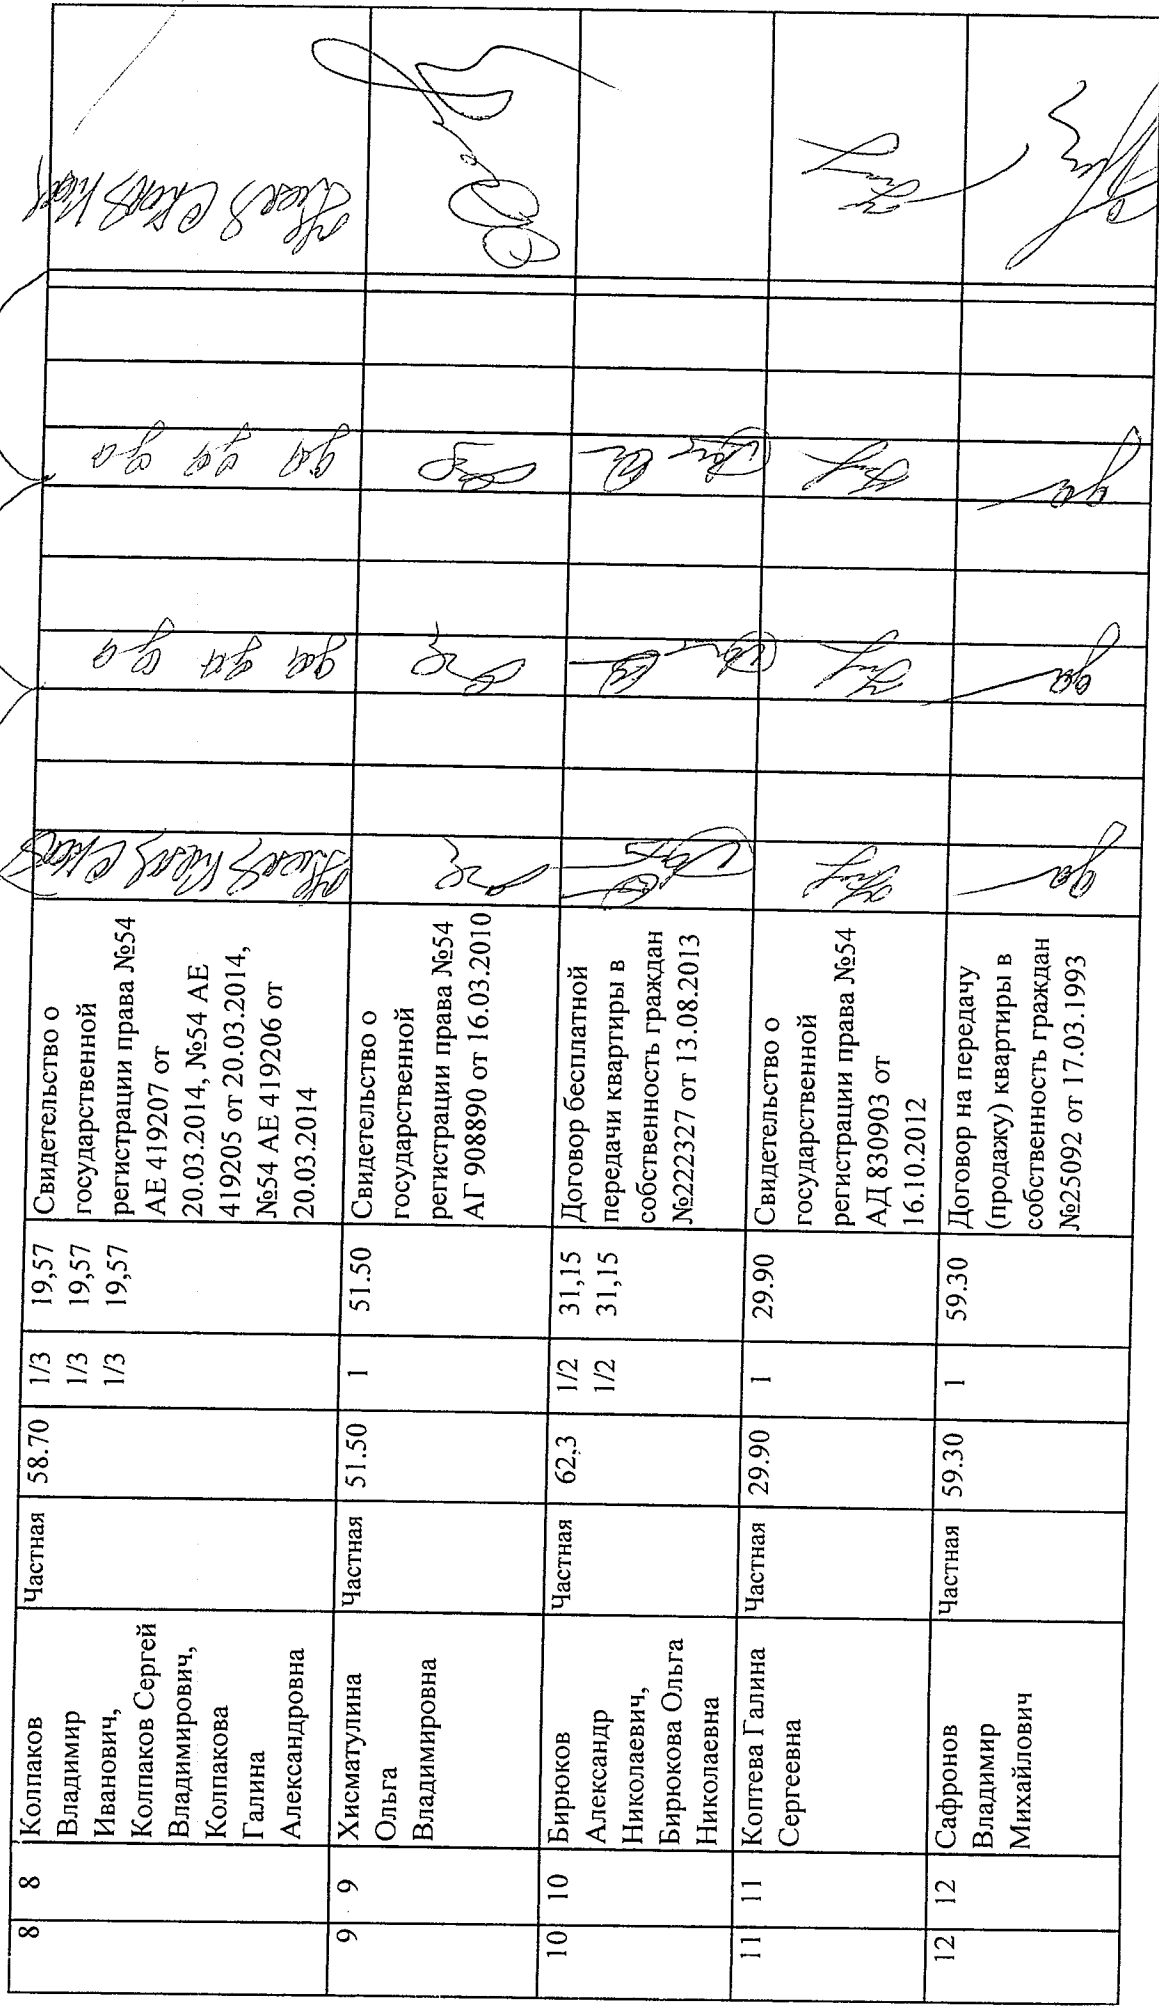 8
8
Колпаков
Владимир
Иванович,
Колпаков Сергей
Владимирович,
Колпакова
Галина
Александровна
Частная
58.70
1/3
1/3
1/3
19,57
19,57
19,57
Свидетельство о
государственной
регистрации права №54
АЕ 419207 от
20.03.2014, №54 АЕ
419205 от 20.03.2014,
№54 АЕ 419206 от
20.03.2014
да
да
да
да
да
да
9
9
Хисматулина
Ольга
Владимировна
Частная
51.50
1
51.50
Свидетельство о
государственной
регистрации права №54
АГ 908890 от 16.03.2010
10
10
Бирюков
Александр
Николаевич,
Бирюкова Ольга
Николаевна
Частная
62,3
1/2
1/2
31,15
31,15
Договор бесплатной
передачи квартиры в
собственность граждан
№222327 от 13.08.2013
11
11
Коптева Галина
Сергеевна
Частная
29.90
1
29.90
Свидетельство о
государственной
регистрации права №54
АД 830903 от
16.10.2012
12
12
Сафронов
Владимир
Михайлович
Частная
59.30
1
59.30
Договор на передачу
(продажу) квартиры в
собственность граждан
№25092 от 17.03.1993
да
да
да